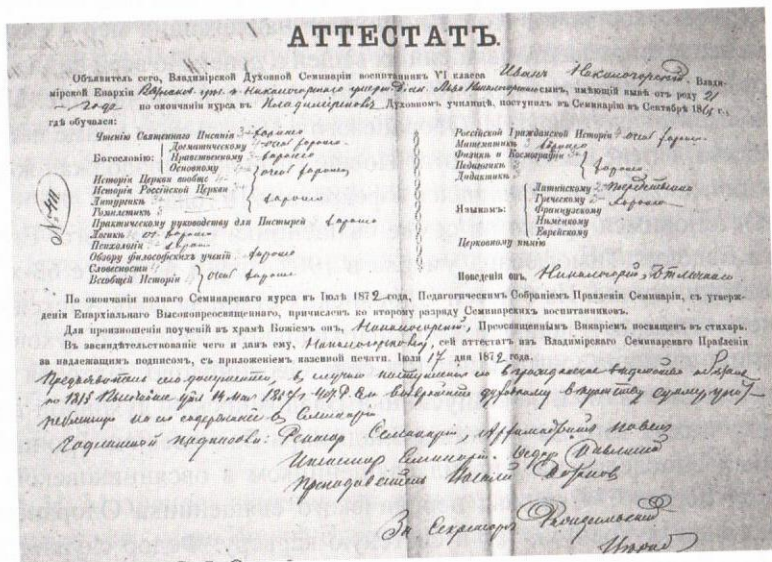 АТТЕСТАТЪ.
Объявитель сего, Владимірской Духовной Семинаріи воспитанникъ VI класса Иванъ Никологорскій, Влади-
мірской Епархіи сынъ, имѣющій нынѣ отъ роду 21
года по окончаніи курса въ Владимірскомъ Духовномъ училищѣ, поступилъ въ Семинарію въ Сентябрѣ 186 г.,
гдѣ обучался:
Чтенію Священнаго Писанія хорошо
Богословію:
Догматическому очень хорошо
Нравственному хорошо
Основному очень хорошо
Исторіи Церкви вообще
Исторіи Россійской Церкви
Литургикѣ хорошо
Гомилетикѣ
Практическому руководству для Пастырей хорошо
Логикѣ хорошо
Психологіи хорошо
Обзору философскихъ ученій хорошо
Словесности
Всеобщей Исторіи очень хорошо
№
Россійской Гражданской Исторіи очень хорошо
Математикѣ хорошо
Физикѣ и Космографіи
Педагогикѣ хорошо
Дидактикѣ
Языкамъ:
Латинскому посредственно
Греческому хорошо
Французскому
Нѣмецкому
Еврейскому
Церковному пѣнію
Поведенія онъ, Никологорскій, Отличнаго
По окончаніи полнаго Семинарскаго курса въ Іюлѣ 1872 года, Педагогическимъ Собраніемъ Правленія Семинаріи, съ утверж-
денія Епархіальнаго Высокопреосвященнаго, причисленъ ко второму разряду Семинарскихъ воспитанниковъ.
Для произношенія поученій въ храмѣ Божіемъ онъ, Никологорскій, Преосвященнымъ Викаріемъ посвященъ въ стихарь.
Въ засвидѣтельствованіе чего и данъ ему, Никологорскому, сей аттестатъ изъ Владимірскаго Семинарскаго Правленія
за надлежащимъ подписомъ, съ приложеніемъ казенной печати. Іюля 17 дня 1872 года.
сего документа, въ случаѣ поступленія его въ гражданское вѣдомство
возвратить духовному вѣдомству сумму, упот-
ребленную на его содержаніе въ Семинаріи.
подписали: Ректоръ Семинаріи, Архимандритъ Павелъ
Инспекторъ Семинаріи Ѳедоръ Павельскій
Преподаватель Василій
За Секретаря